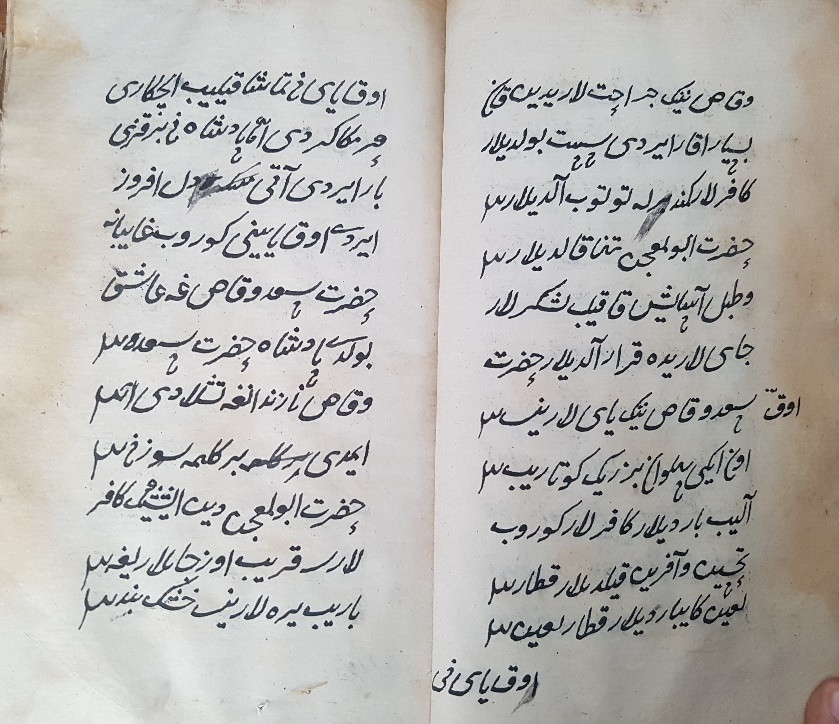 وقاص نینک جراحت لاریدین قان
بسیار اقار ایردی سست بولدیلار
کافرلار کمند برله توتوب آلدیلار
حضرت ابوالمعجن تنها قالدیلار
وطبل آسایش قاقیب لشکرلار
جای لاریده قرار آلدیلار حضرت
سعد وقاص نینک یای لارینی
اوق
اون ایکی پهلوان بزریک کوتاریب
آلیب باردیلار کافرلار کوروب
تحسین وآفرین قیلدیلار قطار
لعین کا یباردیلار قطار لعین
اوق یای نی
اوق یای نی تماشا قیلیب ایچکاری
هرمکا کردی اما پادشاه نی بر قیزی
بار ایردی آتی دل افروز
ایردی اوق یایینی کوروب غایبانه
حضرت سعد وقاص غه عاشق
بولدی پادشاه حضرت سعد
وقاص نی زندانغه تشلادی اما
ایمدی بر کلمه سوزنی
حضرت ابوالمعجن دین ایشیتینک کافر
لار سر قریب اوز جایلاریغه
باریب یره لارینی خشک بند